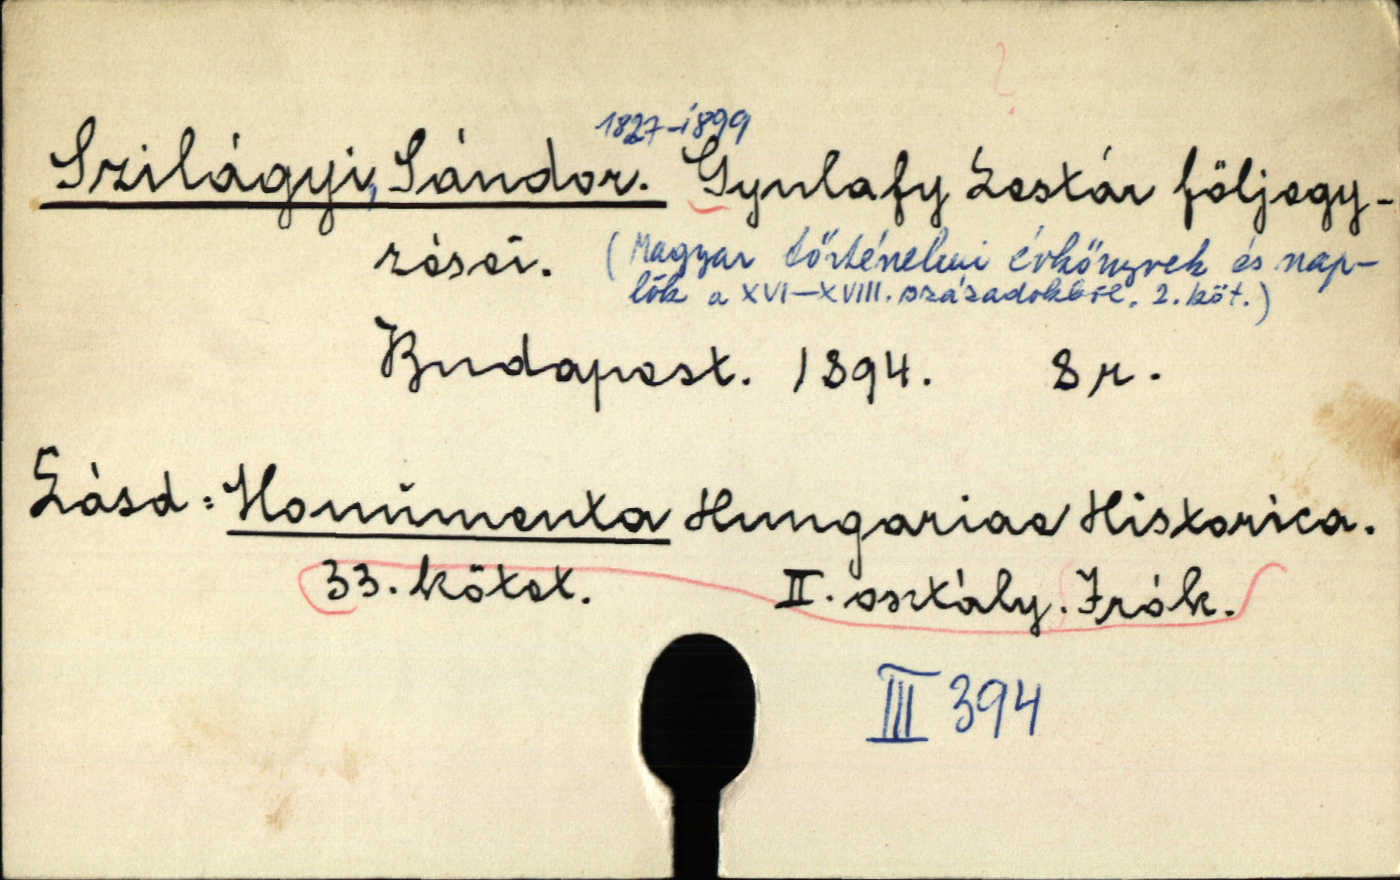 1827-1899
Szilágyi, Sándor. Gyulafy Lestár följegy-
zései. (Magyar történelmi évkönyvek és nap-
lók a XVI-XVIII. századokból. 2. köt.)
Budapest. 1894. 8 r.
Lásd: Monumenta Hungariae Historica.
33. kötet. II. osztály. Irók.
III 394